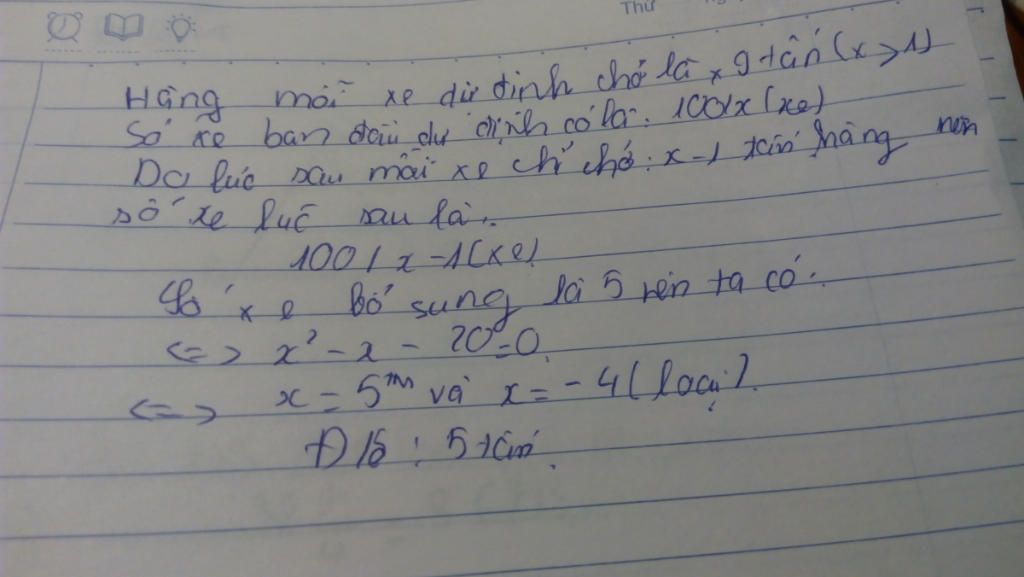 Thứ
Hàng mỗi xe dự định chở là x tấn (x > 1)
Số xe ban đầu dự định có là: 100/x (xe)
Do lúc sau mỗi xe chỉ chở: x-1 tấn hàng nên
số xe lúc sau là:
100/x-1 (xe)
Số xe bổ sung là 5 nên ta có:
<=> x² - x - 20 = 0
<=> x = 5 TM và x = -4 (loại).
Đ/Số : 5 tấn.